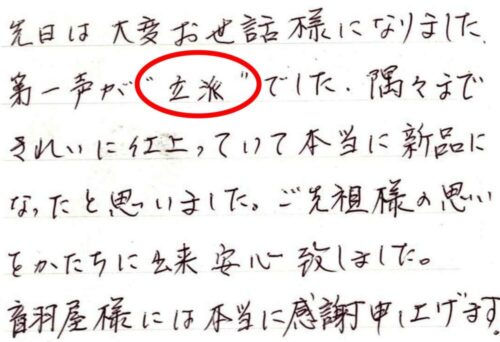 先日は大変お世話様になりました
第一声が“立派”でした。隅々まで
きれいに仕上っていて本当に新品に
なったと思いました。ご先祖様の思い
をかたちに出来安心致しました。
音羽屋様には本当に感謝申し上げます